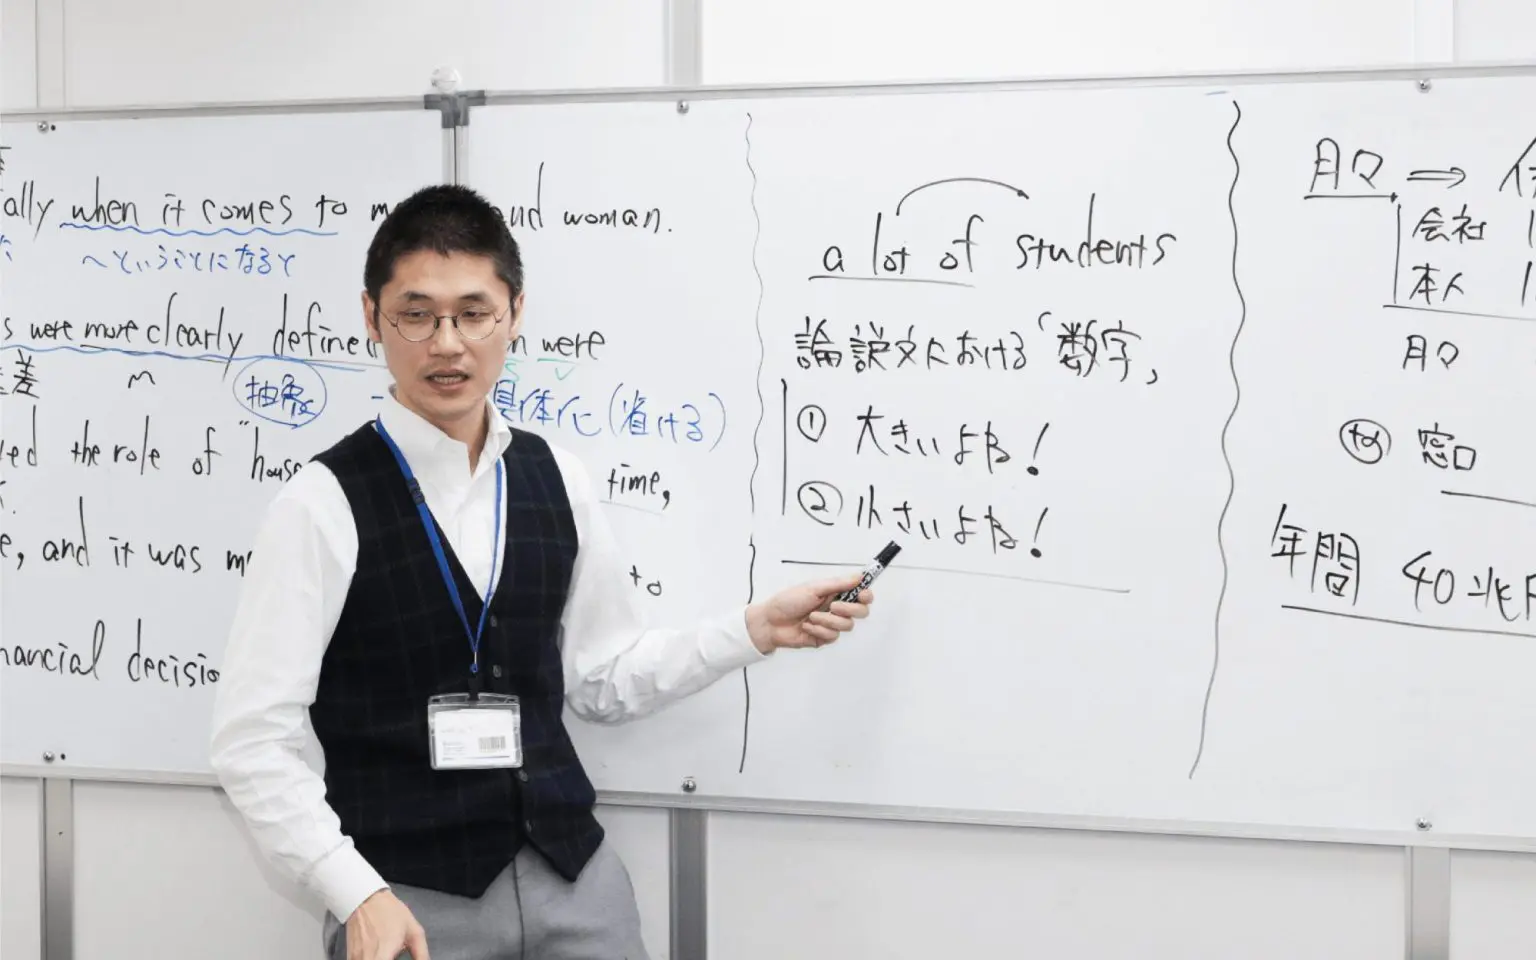 ally when it comes to m nd woman.
〜ということになると
s were more clearly define n were
差
抽象 具体化(省ける)
ed the role of "hous time,
e, and it was m to
nancial decisio
a lot of students
論説文における「数字」
① 大きいよね!
② 小さいよね!
月々 ⇒
会社
本人
月々
窓口
年間 40兆円